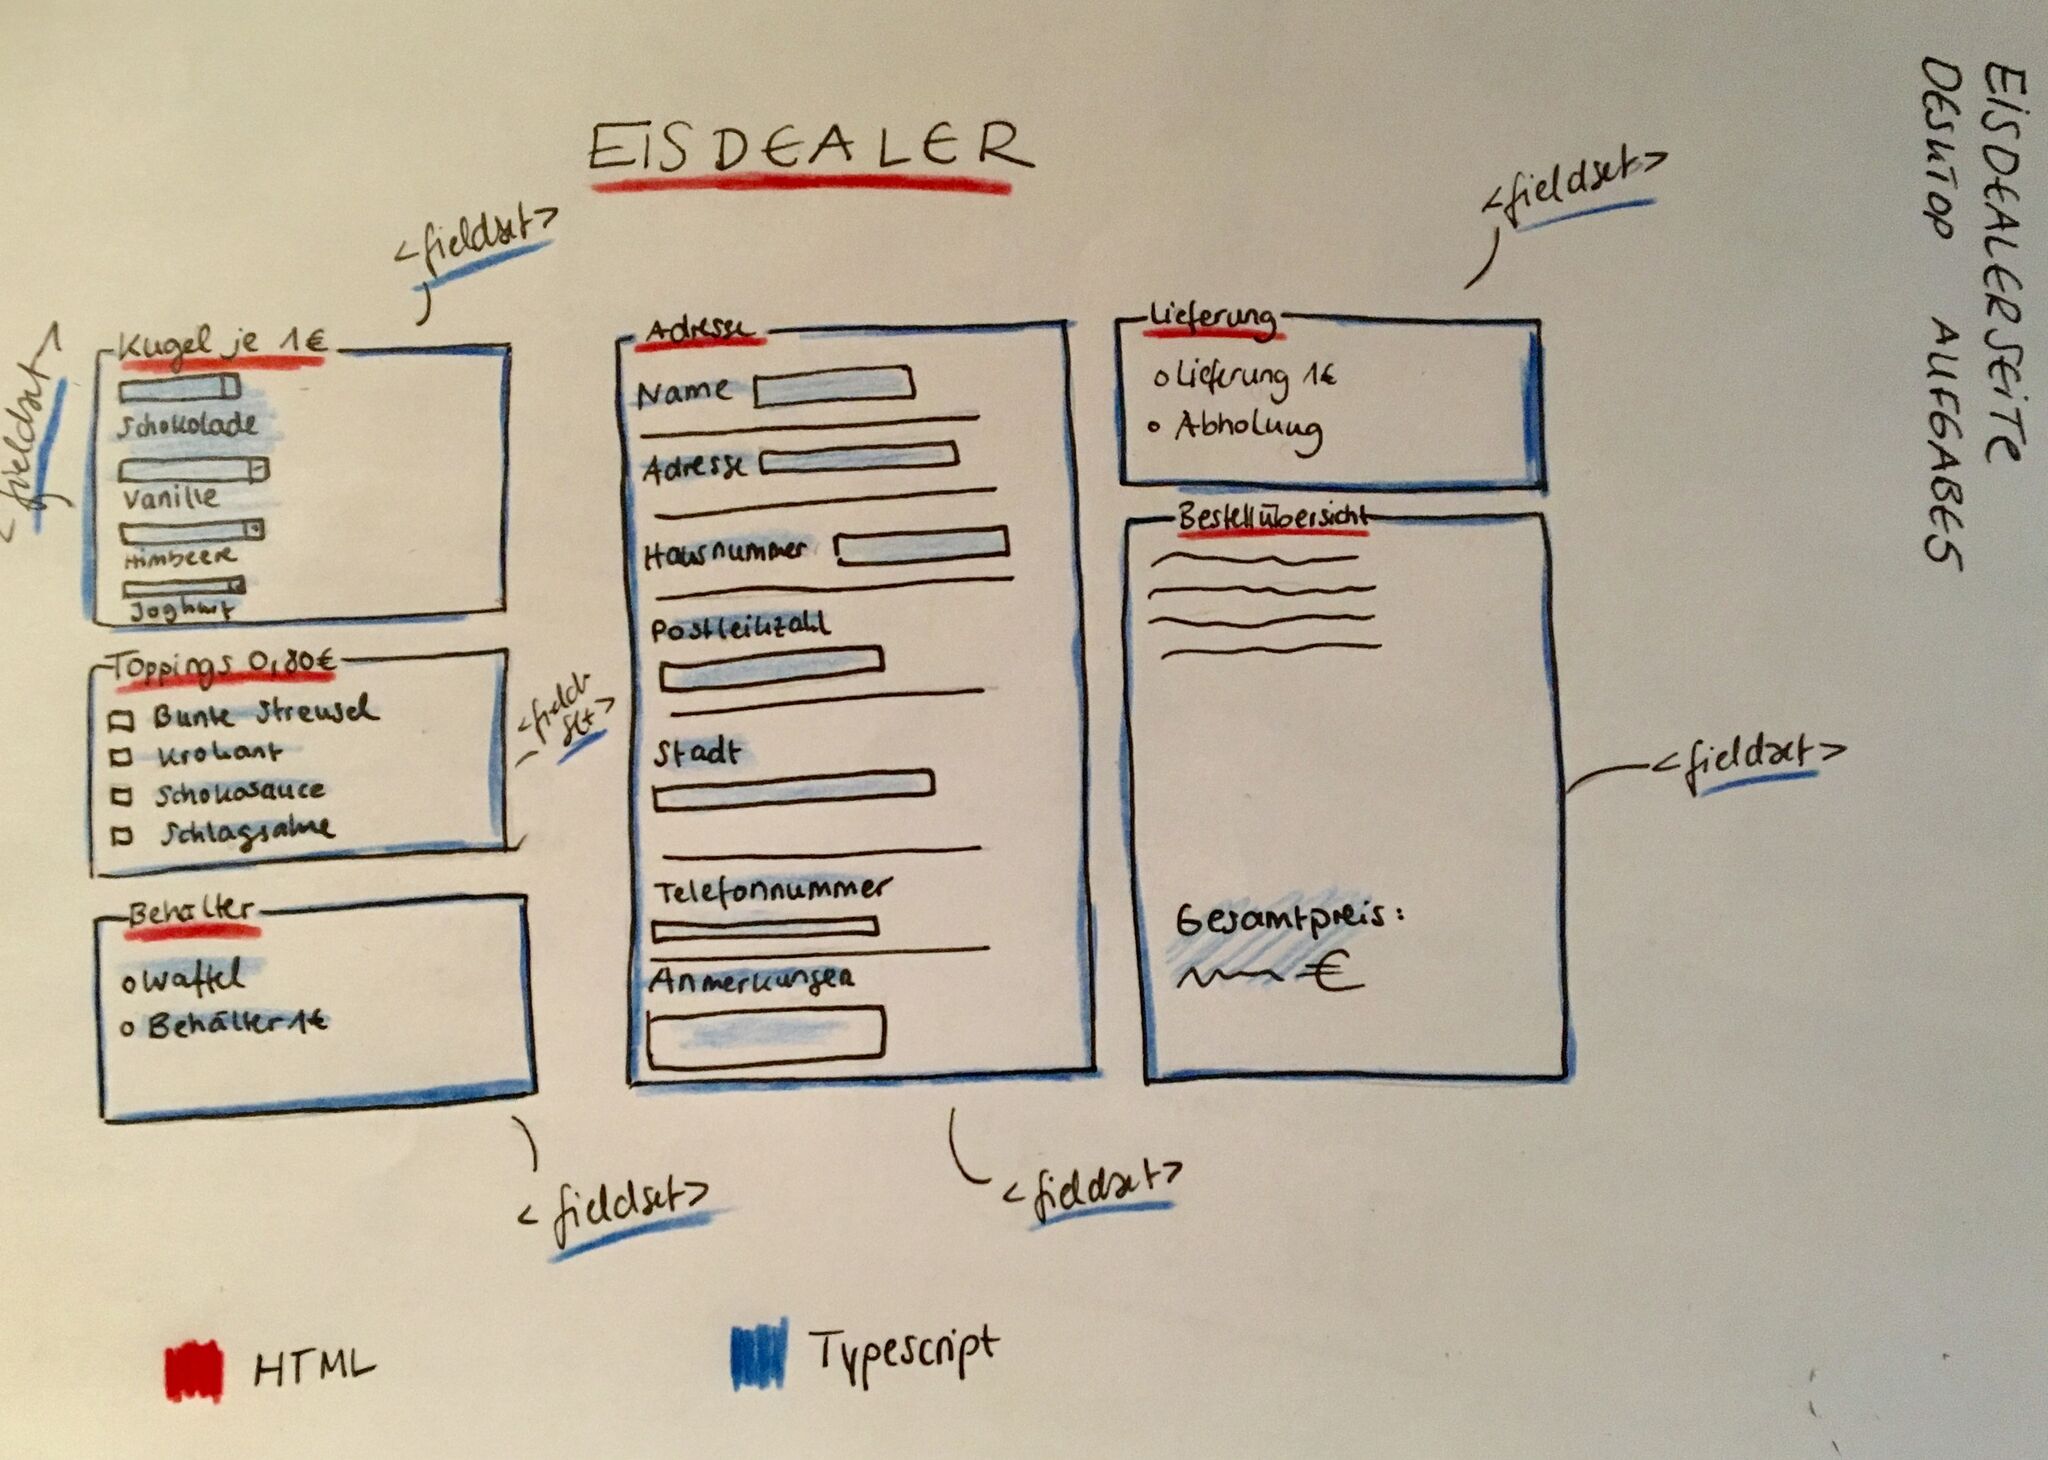 EISDEALER
<fieldset>
<fieldset>
<fieldset>
Kugel je 1€
Schokolade
Vanille
Himbeere
Joghurt
Toppings 0,80€
Bunte Streusel
Krokant
Schokosauce
Schlagsahne
<field
set>
Behälter
Waffel
Behälter 1€
<fieldset>
Adresse
Name
Adresse
Hausnummer
Postleihzahl
Stadt
Telefonnummer
Anmerkungen
<fieldset>
Lieferung
Lieferung 1€
Abholung
Bestellübersicht
Gesamtpreis:
€
<fieldset>
HTML
Typescript
EISDEALERSEITE
DESKTOP AUFGABE5